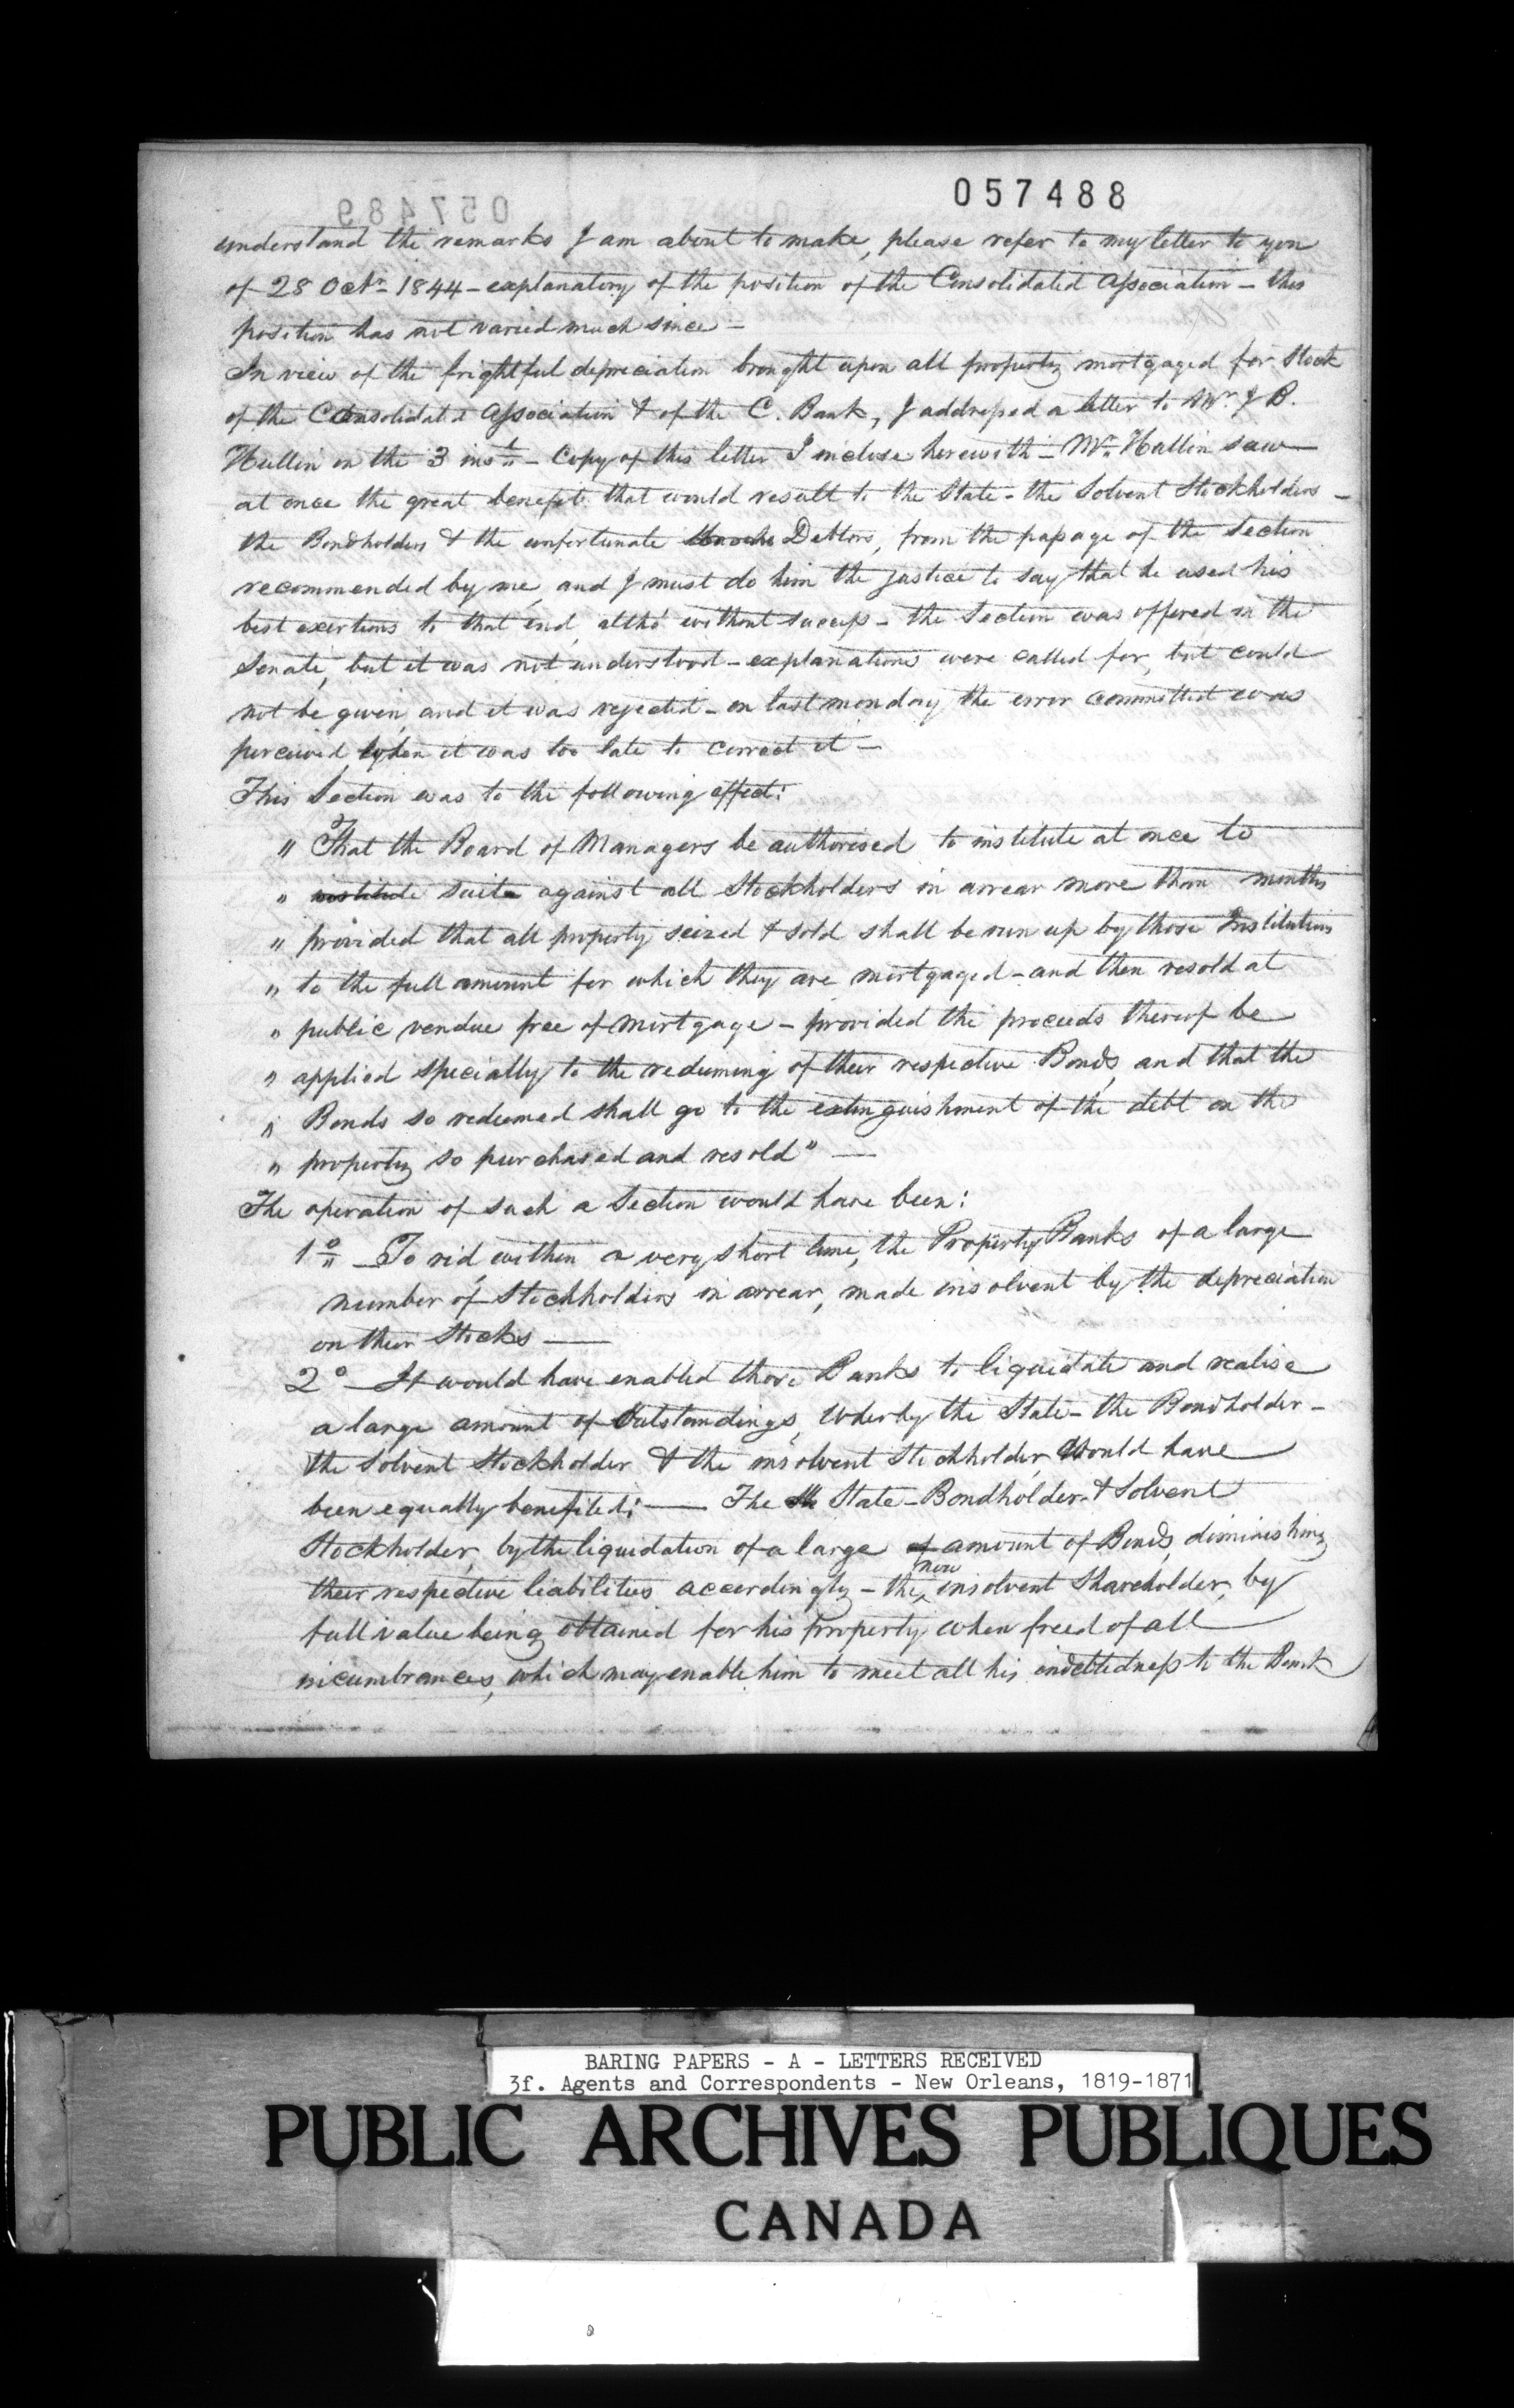 057488
057489
understand the remarks I am about to make, please refer to my letter to you
of 28 Octr 1844 – explanatory of the position of the Consolidated Association – this
position has not varied much since –
In view of the frightful depreciation brought upon all property mortgaged for Stock
of the Consolidated Association & of the C. Bank, I addressed a letter to Mr. J B.
Hullin on the 3 inst – Copy of this letter I inclose herewith – Mr. Hullin saw
at once the great benefit that would result to the State – the Solvent Stockholders –
the Bondholders & the unfortunate Debtors, from the passage of the Section
recommended by me, and I must do him the justice to say that he used his
best exertions to that end, altho' without success – the Section was offered in the
Senate, but it was not understood – explanations were called for, but could
not be given, and it was rejected – on last monday the error committed was
perceived, when it was too late to correct it –
This Section was to the following effect:
" That the Board of Managers be authorised to institute at once to
" institute suits against all Stockholders in arrear more than months
" provided that all property seized & sold shall be run up by those Institutions
" to the full amount for which they are mortgaged – and then resold at
" public vendue free of mortgage – provided the proceeds thereof be
" applied specially to the redeeming of their respective Bonds, and that the
" Bonds so redeemed shall go to the extinguishment of the debt on the
" property so purchased and resold" —
The operation of such a Section would have been:
1o – To rid, within a very short time, the Property Banks of a large
number of Stockholders in arrear, made insolvent by the depreciation
on their Stocks —
2o – It would have enabled those Banks to liquidate and realise
a large amount of Outstandings, wherby the State – the Bondholder –
the Solvent Stockholder & the insolvent Stockholder, Would have
been equally benefited: — The State – Bondholder & Solvent
Stockholder, by the liquidation of a large of amount of Bonds, diminishing
their respective liabilities accordingly – the now insolvent Shareholder, by
full value being obtained for his property when freed of all
incumbrances, which may enable him to meet all his indebtedness to the Bank
BARING PAPERS - A - LETTERS RECEIVED
3f. Agents and Correspondents - New Orleans, 1819-1871
PUBLIC ARCHIVES PUBLIQUES
CANADA